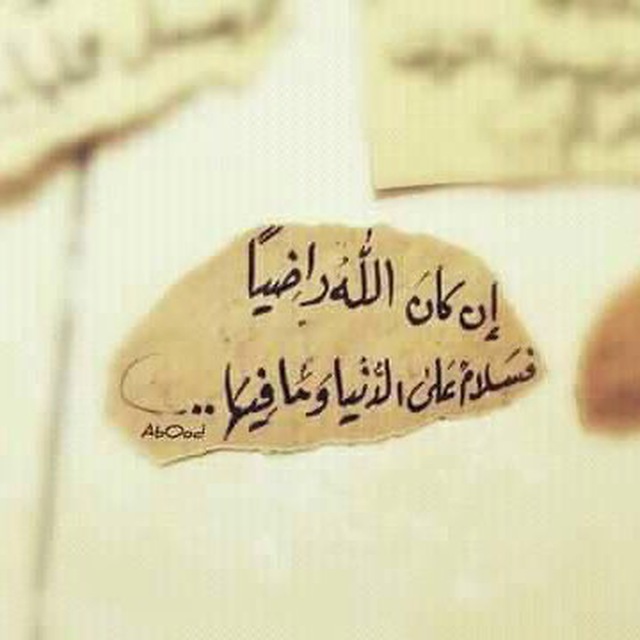 إن كانَ اللّٰهُ راضِيًا
فَسَلامٌ عَلىٰ الدُنْيا وَمَا فِيهَا ..
AbOod